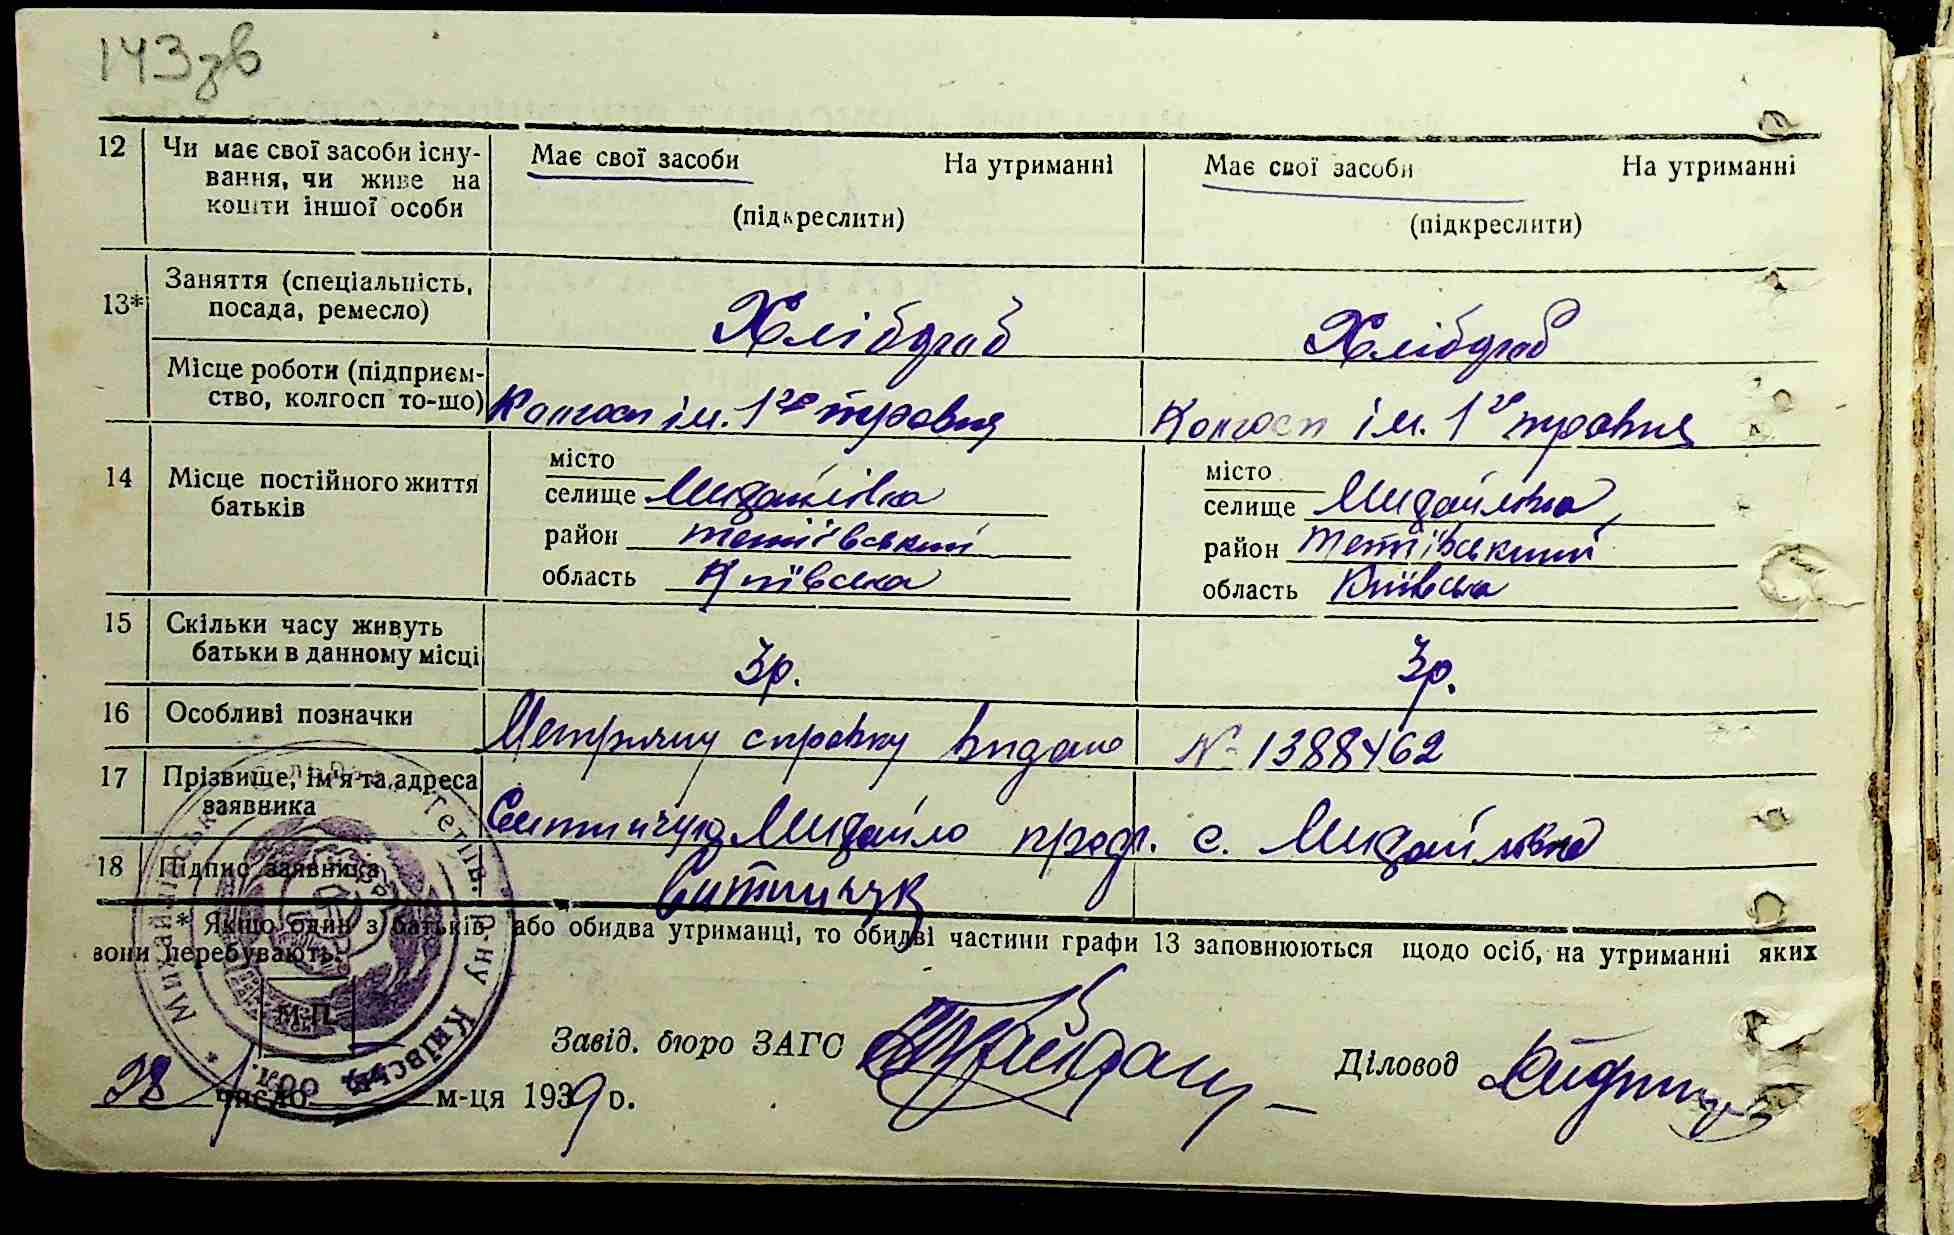 143зв
12 Чи має свої засоби існу-
вання, чи живе на
кошти іншої особи
Має свої засоби На утриманні
(підкреслити)
Має свої засоби На утриманні
(підкреслити)
13* Заняття (спеціальність,
посада, ремесло)
Хлібороб Хлібороб
Місце роботи (підприєм-
ство, колгосп то-що)
Колгосп ім. 1го травня Колгосп ім. 1го травня
14 Місце постійного життя
батьків
місто
селище Михайлівка
район Тетіївський
область Київська
місто
селище Михайлівка
район Тетіївський
область Київська
15 Скільки часу живуть
батьки в данному місці
3р. 3р.
16 Особливі позначки
Метричну справку видано № 1388462
17 Прізвище, ім'я та адреса
заявника
Ситничук Михайло с. Михайлівка
18 Підпис заявника
Ситничук
* Якщо один з батьків або обидва утриманці, то обидві частини графи 13 заповнюються щодо осіб, на утриманні яких
вони перебувають.
М.П.
Завід. бюро ЗАГС
Діловод
28 число м-ця 1939 р.
Тетіїв. р-ну Київськ. обл.